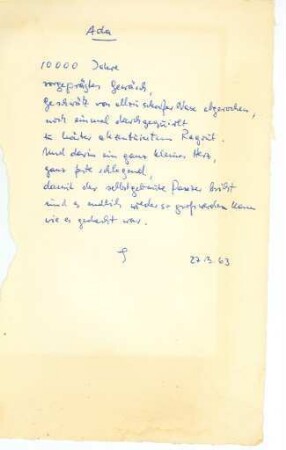 Ada
10000 Jahre
vorgeprägtes Gewäsch,
Geschwätz von allzu scharfer Nase abgerochen,
noch einmal durchgequirlt
zu hinter akzentuiertem Ragout.
Und darin ein ganz kleines Herz,
ganz fest schlagend,
damit der selbstgebaute Panzer bricht
und es endlich wieder so groß werden kann
wie es gedacht war.
27.3.63